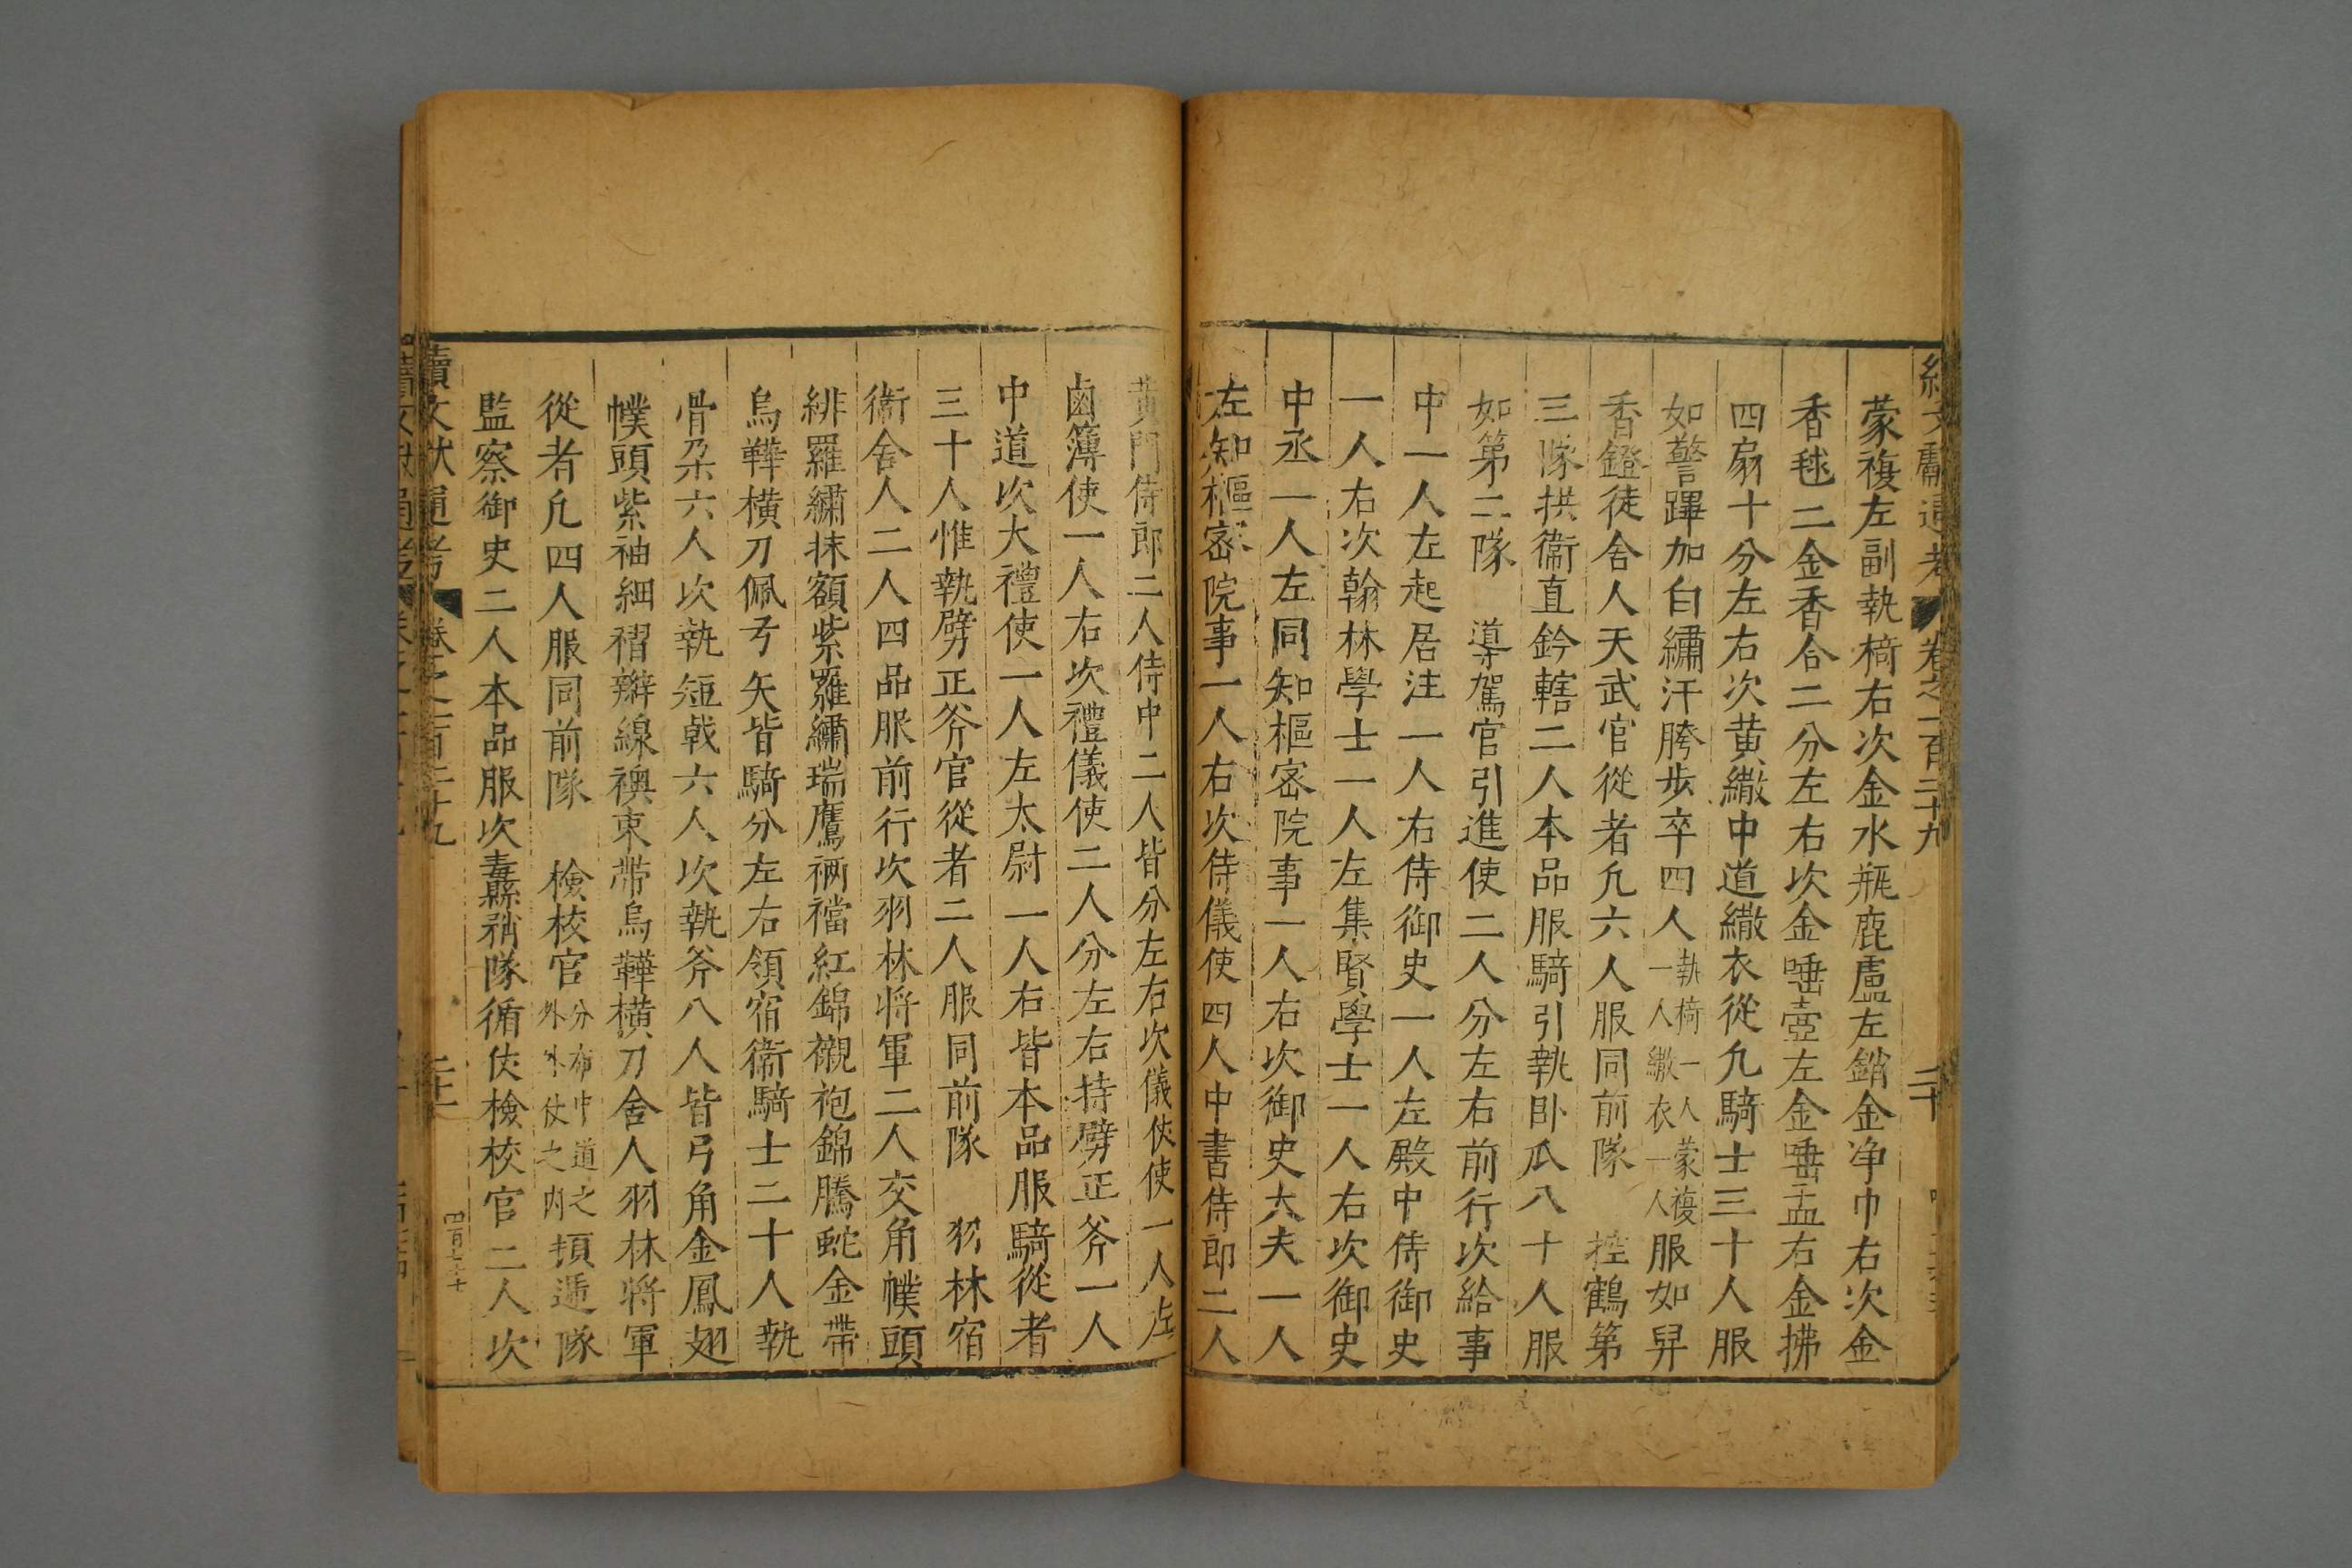 續文獻通考 卷之一百二十九 二十
蒙複左副執椅右次金水瓶鹿盧左銷金净巾右次金
香毬二金香合二分左右次金唾壺左金唾盂右金拂
四扇十分左右次黄繖中道繖衣從凢騎士三十人服
如警蹕加白繡汗胯步卒四人執椅一人蒙複一人繖衣一人服如舁
香鐙徒舍人天武官從者凢六人服同前隊 控鶴第
三隊拱衞直鈐轄二人本品服騎引執卧瓜八十人服
如第二隊 導駕官引進使二人分左右前行次給事
中一人左起居注一人右侍御史一人左殿中侍御史
一人右次翰林學士一人左集賢學士一人右次御史
中丞一人左同知樞密院事一人右次御史大夫一人
左知樞密院事一人右次侍儀使四人中書侍郎二人
黄門侍郎二人侍中二人皆分左右次儀仗使一人左
鹵簿使一人右次禮儀使二人分左右持劈正斧一人
中道次大禮使一人左太尉一人右皆本品服騎從者
三十人惟執劈正斧官從者二人服同前隊 羽林宿
衞舍人二人四品服前行次羽林将軍二人交角幞頭
緋羅繡抹額紫羅繡瑞鷹裲襠紅錦襯袍錦騰蛇金帶
烏鞾横刀佩弓矢皆騎分左右領宿衞騎士二十人執
骨朵六人次執短戟六人次執斧八人皆弓角金鳳翅
幞頭紫袖細褶辮線襖束帶烏鞾横刀舍人羽林将軍
從者凢四人服同前隊 檢校官分布中道之外外仗之内頓遞隊
監察御史二人本品服次纛矟隊循仗檢校官二人次
續文獻通考 卷之一百二十九